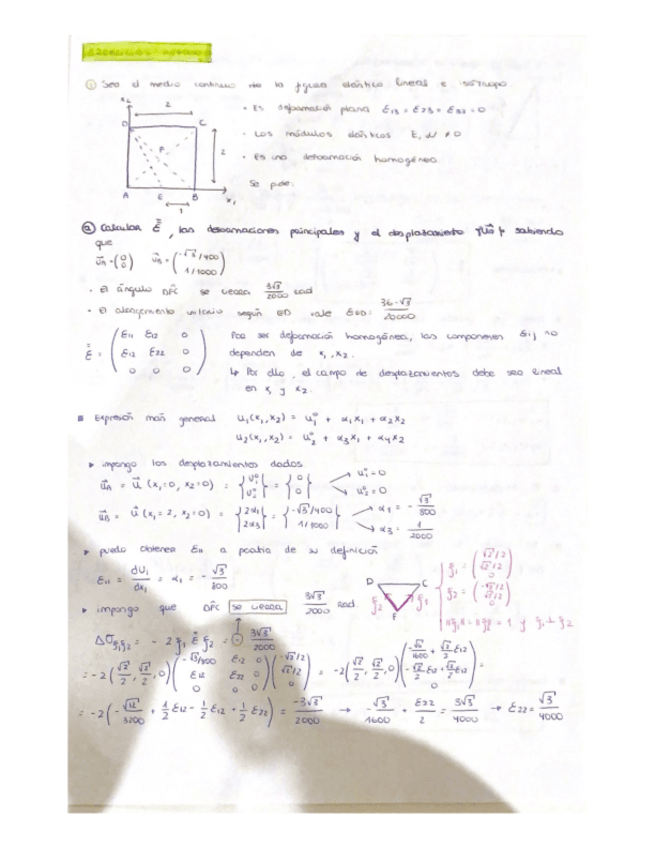 ① Sea el medio continuo de la figura elástico lineal e isótropo.
x₂
2
D
C
P
2
A
E
B
x₁
1
• Es deformación plana ε₁₃ = ε₂₃ = ε₃₃ = 0
• Los módulos elásticos E, ν ≠ 0
• Es una deformación homogénea.
Se pide:
ⓐ Calcular ε̿, las deformaciones principales y el desplazamiento sabiendo
que
u⃗A = (0 0) u⃗B = (-√3/400 1/1000)
• El ángulo DPC se cierra 3√3/2000 rad
• El alargamiento unitario según ED vale εED = 36-√3/20000
ε̿ = (ε₁₁ ε₁₂ 0 / ε₁₂ ε₂₂ 0 / 0 0 0)
Por ser deformación homogénea, las componentes εij no
dependen de x₁, x₂.
↳ Por ello, el campo de desplazamientos debe ser lineal
en x₁ y x₂.
Expresión más general u₁(x₁,x₂) = u₁⁰ + α₁x₁ + α₂x₂
u₂(x₁,x₂) = u₂⁰ + α₃x₁ + α₄x₂
▸ impongo los desplazamientos dados
u⃗A = u⃗ (x₁=0, x₂=0) = {u₁⁰ u₂⁰} = {0 0} → u₁⁰=0 → u₂⁰=0
u⃗B = u⃗ (x₁=2, x₂=0) = {2α₁ 2α₃} = {-√3/400 1/1000} → α₁ = -√3/800 → α₃ = 1/2000
▸ puedo obtener ε₁₁ a partir de su definición
ε₁₁ = du₁/dx₁ = α₁ = -√3/800
▸ impongo que DPC se cierra 3√3/2000 rad.
D C
ξ₂ ξ₁
P
ξ₁ = (√2/2 √2/2 0)
ξ₂ = (-√2/2 √2/2 0)
‖ξ₁‖ = ‖ξ₂‖ = 1 y ξ₁ ⊥ ξ₂
Δθξ₁ξ₂ = -2 ξ₁ ε̿ ξ₂ = ⊖ 3√3/2000
= -2 (√2/2, √2/2, 0) (-√3/800 ε₁₂ 0 / ε₁₂ ε₂₂ 0 / 0 0 0) (-√2/2 √2/2 0) = -2 (√2/2, √2/2, 0) (√6/1600 + √2/2 ε₁₂ / -√2/2 ε₁₂ + √2/2 ε₂₂ / 0) =
= -2 (√12/3200 + 1/2 ε₁₂ - 1/2 ε₁₂ + 1/2 ε₂₂) = -3√3/2000 → √3/1600 + ε₂₂/2 = 3√3/4000 → ε₂₂ = √3/4000